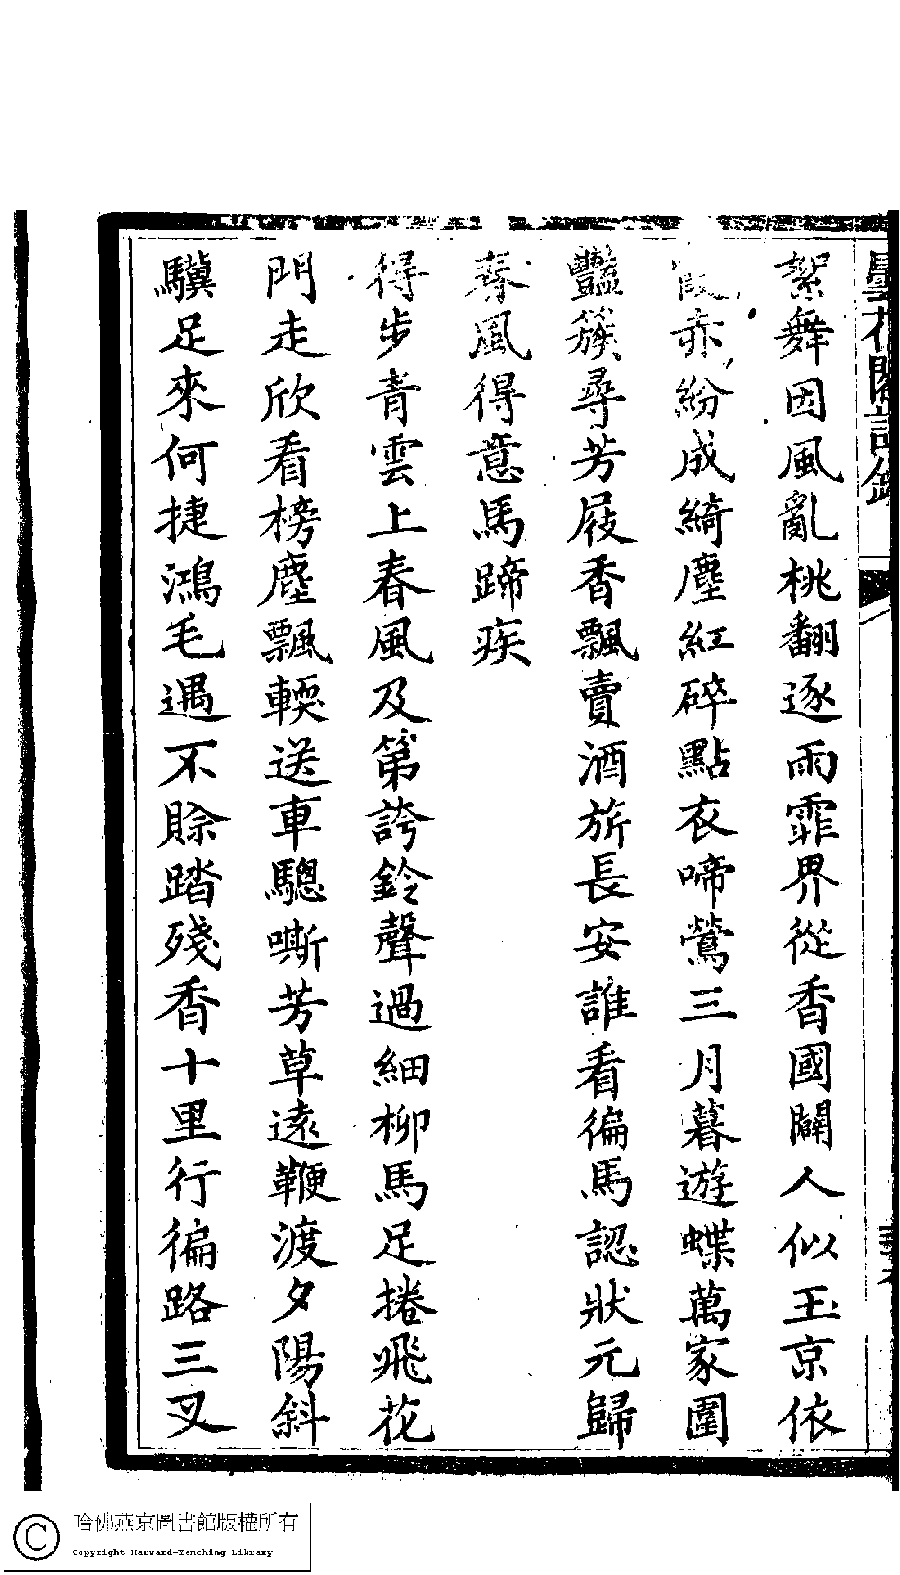 曇花閣詩鈔
絮舞因風亂桃翻逐雨霏界從香國闢人似玉京依
霞赤紛成綺塵紅碎點衣啼鶯三月暮遊蝶萬家圍
豔簇尋芳屐香飄賣酒旂長安誰看徧馬認狀元歸
春風得意馬蹄疾
得步青雲上春風及第誇鈴聲過細柳馬足捲飛花
門走欣看榜塵飄輭送車驄嘶芳草遠鞭渡夕陽斜
驥足來何捷鴻毛遇不賒踏殘香十里行徧路三叉
哈佛燕京圖書館版權所有
Copyright Harvard-Yenching Library